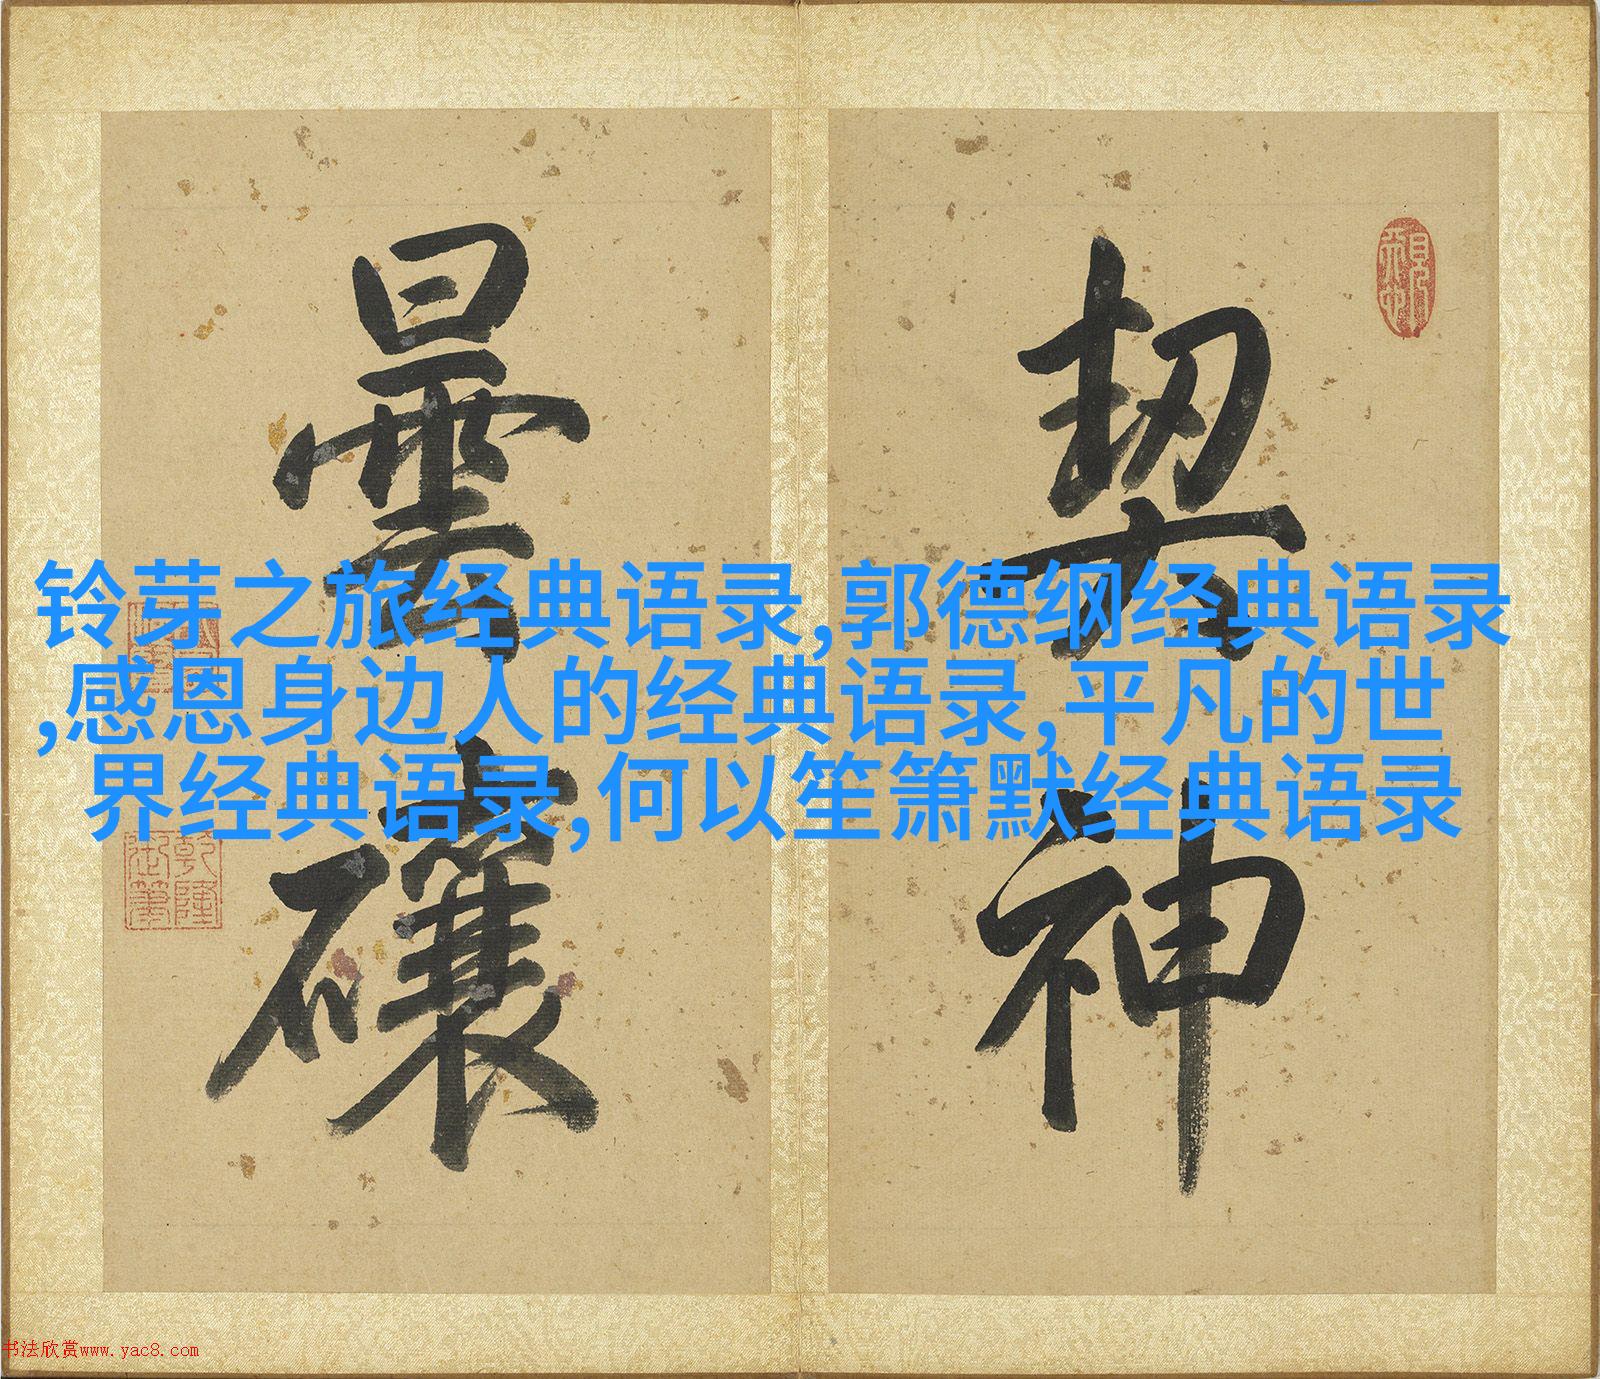 契神
曇礳
铃芽之旅经典语录,郭德纲经典语录
,感恩身边人的经典语录,平凡的世
界经典语录,何以笙箫默经典语录
乾隆
御筆
书法欣赏www.yac8.com